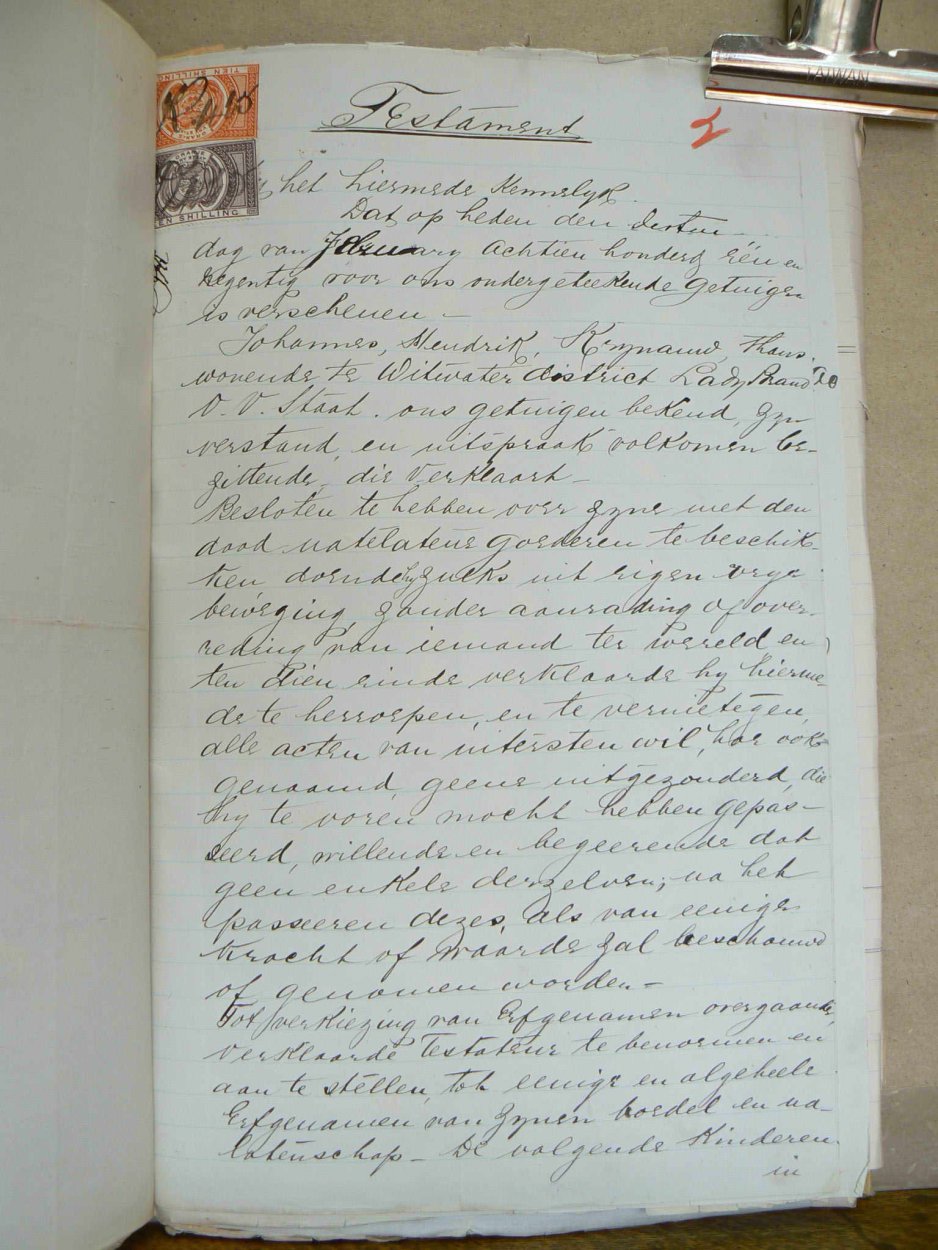 TIEN SHILLING
TAIWAN
Testament
EEN SHILLING
het hiermede Kennelyk.
Dat op heden den
dag van February achtien honderd één en
negentig voor ons ondergeteekende getuigen
is verschenen –
Johannes, Hendrik, Krynauw, thans
wonende te Witwater district Lady Brand
O. V. Staat. ons getuigen bekend, zyn
verstand, en uitspraak volkomen be-
zittende, die Verklaart –
Besloten te hebben over zyne met den
dood natelatene goederen te beschik-
ken doende hy zucks uit eigen vrye
beweging, zonder aanrading of over-
reding van iemand ter wereld en
ten dien einde verklaarde hy hierme-
de te herroepen, en te vernietegen,
alle acten van uitersten wil, hoe ook
genaamd, geene uitgezonderd, die
hy te voren mocht hebben gepas-
seerd, willende en begeerende dat
geen enkele derzelven; na het
passeeren dezes, als van eenige
kracht of waarde zal beschouwd
of genomen worden –
Tot verkiezing van Erfgenamen overgaande,
verklaarde Testateur te benoemen en
aan te stellen, tot eenige en algeheele
Erfgenamen van zynen boedel en na-
latenschap – De volgende Kinderen
in